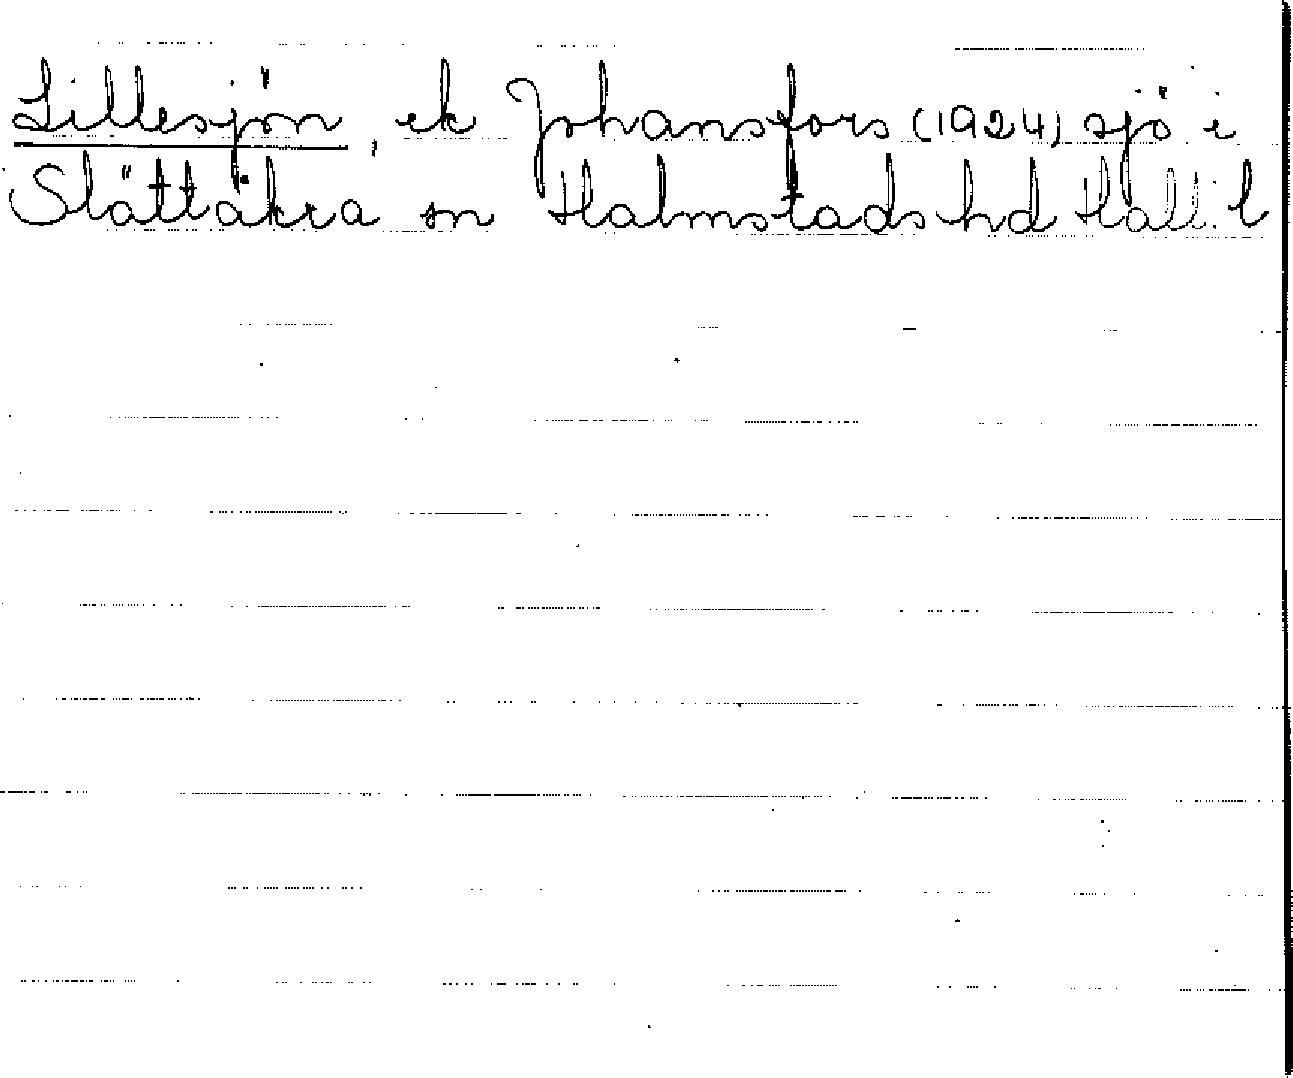 Lillesjön, ek Johansfors (1924) sjö i
Slättåkra sn Halmstads hd Hall. l